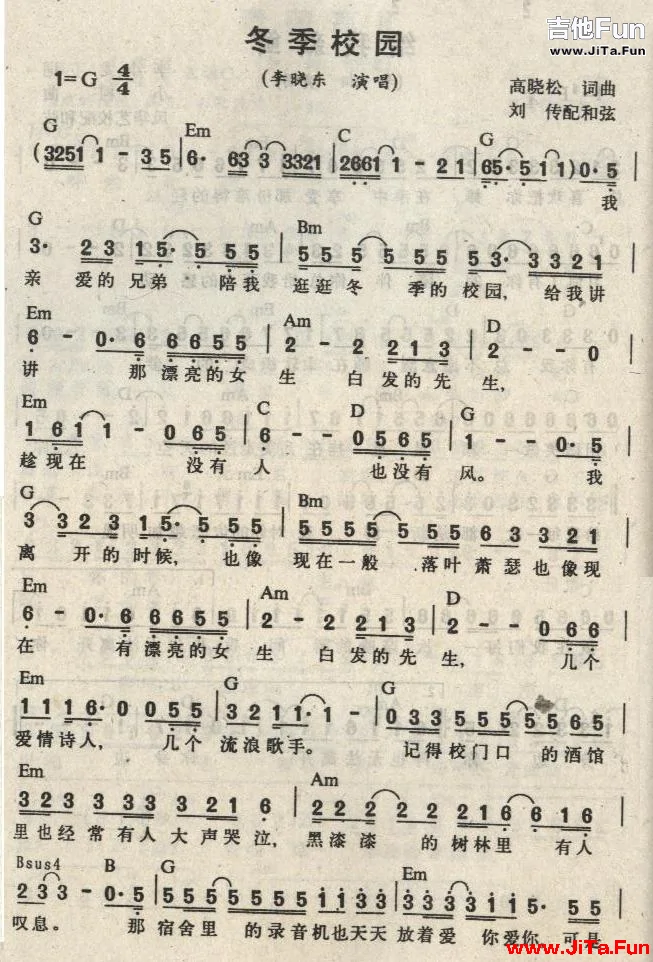 吉他Fun
www.JiTa.Fun
冬季校园
1=G 4/4
(李晓东 演唱)
高晓松 词曲
刘 传配和弦
G Em C G
(3251 1 - 35 | 6· 63 3 3321 | 2661 1 - 21 | 65· 51 1) 0·5 |
我
G Bm
3· 23 15· 5 55 | 5 5 5 5 5 5 3· 3321 |
亲 爱的 兄弟 陪我 逛逛 冬 季的 校园, 给我讲
Em Am D
6 - 0·6 6655 | 2 - 2 213 | 2 - - 0 |
讲 那 漂亮的女 生 白 发的 先 生,
Em C D G
1 61 1 - 065 | 6 - - 0565 | 1 - - 0·5 |
趁 现在 没有 人 也没有 风。 我
G Bm
3 323 15· 55 | 5555 55 63 3321 |
离 开的 时候, 也像 现在一般 落叶 萧瑟也像现
Em Am D
6 - 0·6 6655 | 2 - 2 213 | 2 - - 066 |
在 有 漂亮的女 生 白 发的 先 生, 几个
Em G
1 1 1 6· 0 055 | 32 1 1· 1 - | 033 555 5 565 |
爱情诗人, 几个 流浪歌手。 记得校门口 的酒馆
Em Am
323 333 3216 | 22 2 22 2216 16 |
里也经 常有人 大声哭泣, 黑漆漆 的 树林里 有人
Bsus4 B G Em
23 3 - 0·5 | 5555 555 1133 | 3333 321 5· 55 |
叹息。 那 宿舍里 的 录音机也天天 放着爱 你爱你 可是
www.JiTa.Fun